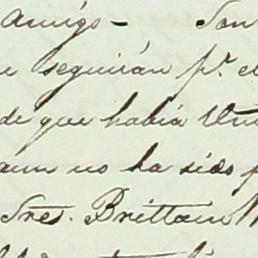 amigo - Son
seguirán pr. el
de que había
aun no ha sido
Sres. Brittain